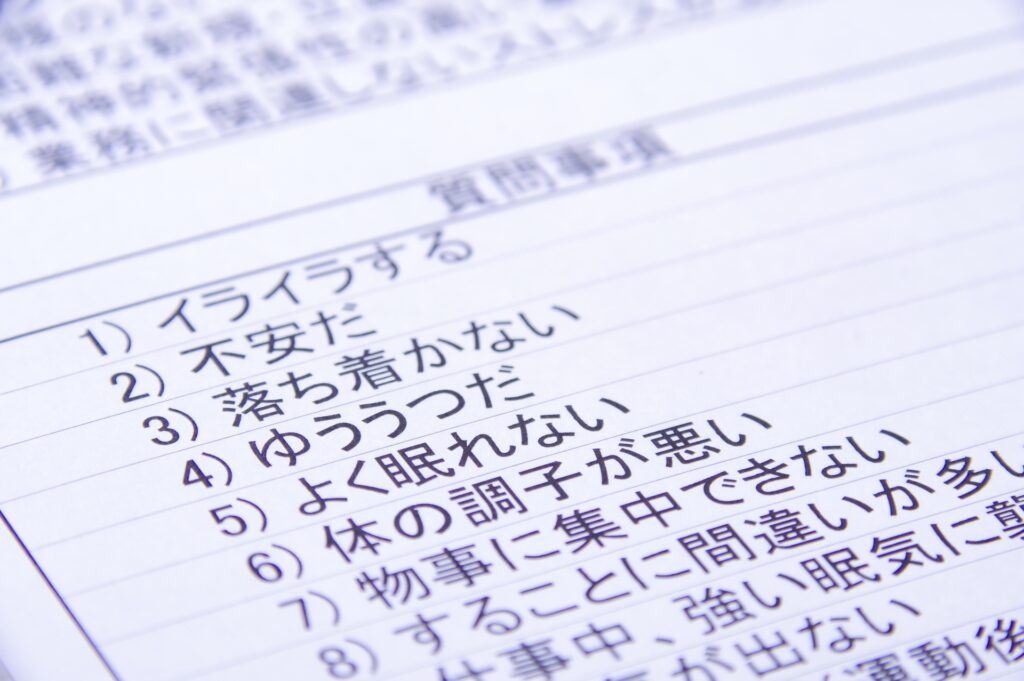 精神的緊張性の
業務に関連しないストレス
質問事項
1) イライラする
2) 不安だ
3) 落ち着かない
4) ゆううつだ
5) よく眠れない
6) 体の調子が悪い
7) 物事に集中できない
8) することに間違いが多い
仕事中、強い眠気に襲
が出ない
運動後